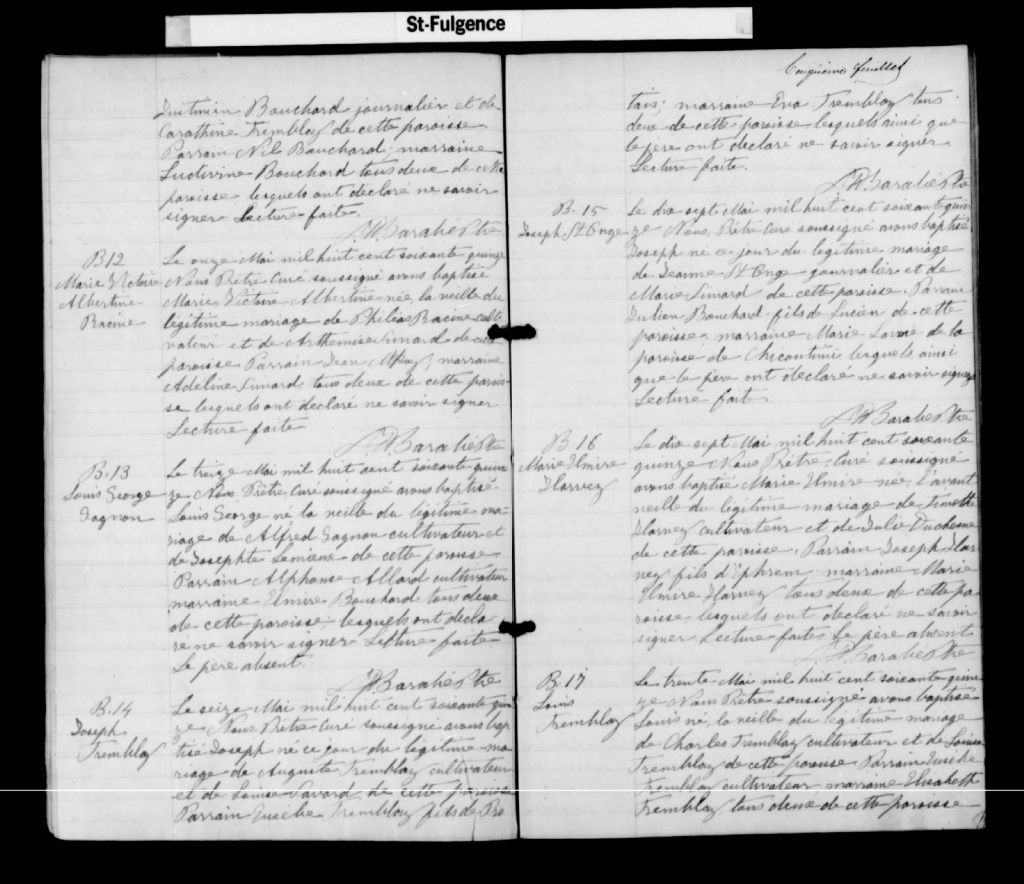 St-Fulgence
Justinian Bouchard journalier et de
Carathine Tremblay de cette paroisse.
Parrain Nil Bouchard; marraine
Ludivine Bouchard tous deux de cette
paroisse lesquels ont déclaré ne savoir
signer Lecture faite.
Ptre
B12
Marie Victoire
Albertine
Racine
Le onze Mai mil huit cent soixante quinze
Nous Prètre Curé soussigné avons baptisé
Marie Victoire Albertine née la veille du
légitime mariage de Philéas Racine culti
vateur et de Arthémise Simard de cette
paroisse Parrain Jean marraine
Adeline Simard tous deux de cette parois-
se lesquels ont déclaré ne savoir signer
Lecture faite
Ptre
B.13
Louis George
Gagnon
Le treize Mai mil huit cent soixante quin
ze Nous Prètre Curé soussigné avons baptisé
Louis George né la veille du légitime ma-
riage de Alfred Gagnon cultivateur et
de Josephte Lemieux de cette paroisse
Parrain Alphonse Allard cultivateur
marraine Elmire Bouchard tous deux
de cette paroisse lesquels ont décla
ré ne savoir signer Lecture faite
Le père absent.
Ptre
B.14
Joseph
Tremblay
Le seize Mai mil huit cent soixante quin
ze Nous Prètre Curé soussigné avons bap
tisé Joseph né ce jour du légitime ma-
riage de Auguste Tremblay cultivateur
et de Louise Savard de cette paroisse
Parrain Eusebe Tremblay fils de Pro
Cinquième feuillet
tais; marraine Eva Tremblay tous
deux de cette paroisse lesquels ainsi que
le père ont déclaré ne savoir signer
Lecture faite.
Ptre
B. 15
Joseph St Onge
Le dix sept Mai mil huit cent soixante quin
ze Nous, Prètre Curé soussigné avons baptisé
Joseph né ce jour du légitime mariage
de St Onge journalier et de
Marie Simard de cette paroisse. Parrain
Julien Bouchard fils de Lucien de cette
paroisse; marraine Marie de la
paroisse de Chicoutimi lesquels ainsi
que le père ont déclaré ne savoir signer
Lecture fait
Ptre
B.16
Marie Elmire
Harvey
Le dix sept Mai mil huit cent soixante
quinze Nous Prètre Curé soussigné
avons baptisé Marie Elmire née l'avant
veille du légitime mariage de Timothé
Harvey cultivateur et de Julie Duchesne
de cette paroisse. Parrain Joseph Har
vey fils d'Ephrem marraine Marie
Elmire Harvey tous deux de cette pa
roisse lesquels ont déclaré ne savoir
signer Lecture faite Le père absent
Ptre
B.17
Louis
Tremblay
Le trente Mai mil huit cent soixante quin
ze Nous Prètre soussigné avons baptisé
Louis né la veille du légitime mariage
de Charles Tremblay cultivateur et de Louise
Tremblay de cette paroisse Parrain Eusebe
Tremblay cultivateur marraine Elisabeth
Tremblay tous deux de cette paroisse